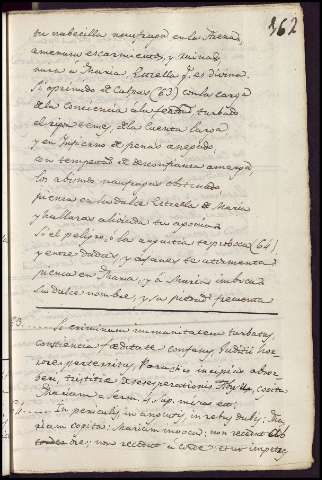 362
tu nabecilla naufraga en la Arena,
amenaza escarmientos, y ruinas,
mira à Maria, Estrella q.e es divina.
Si oprimido de Culpas (63) con la carga
de la conciencia á la fealdad turbado
el rigor temes, de la Cuenta larga
y en Infierno de penas anegado,
con tempestad de desconfianza amarga
los abismos naufragas obstinado
piensa en la dulce Estrella de Maria
y hallaras aliviada tu agonia.
Si el peligro, ó la angustia te provoca (64)
y entre dudas, y afanes te atormenta
piensa en Maria, y á Maria invoca
su dulce nombre, y su piedad frecuenta
63. Si criminum immanitate turbatus,
conscientiæ fæditate confusus, Judicii hor
rore perterritus, Barathro incipias absor
beri, tristitiæ desesperationis Abysso, cogita
Mariam. S. Bern. s. sup. miss. est.
64. In periculis, in angustiis, in rebus dubiis, Ma
riam cogita: Mariam invoca: non recedat ab
ore: non recedat à corde: et ut impetres